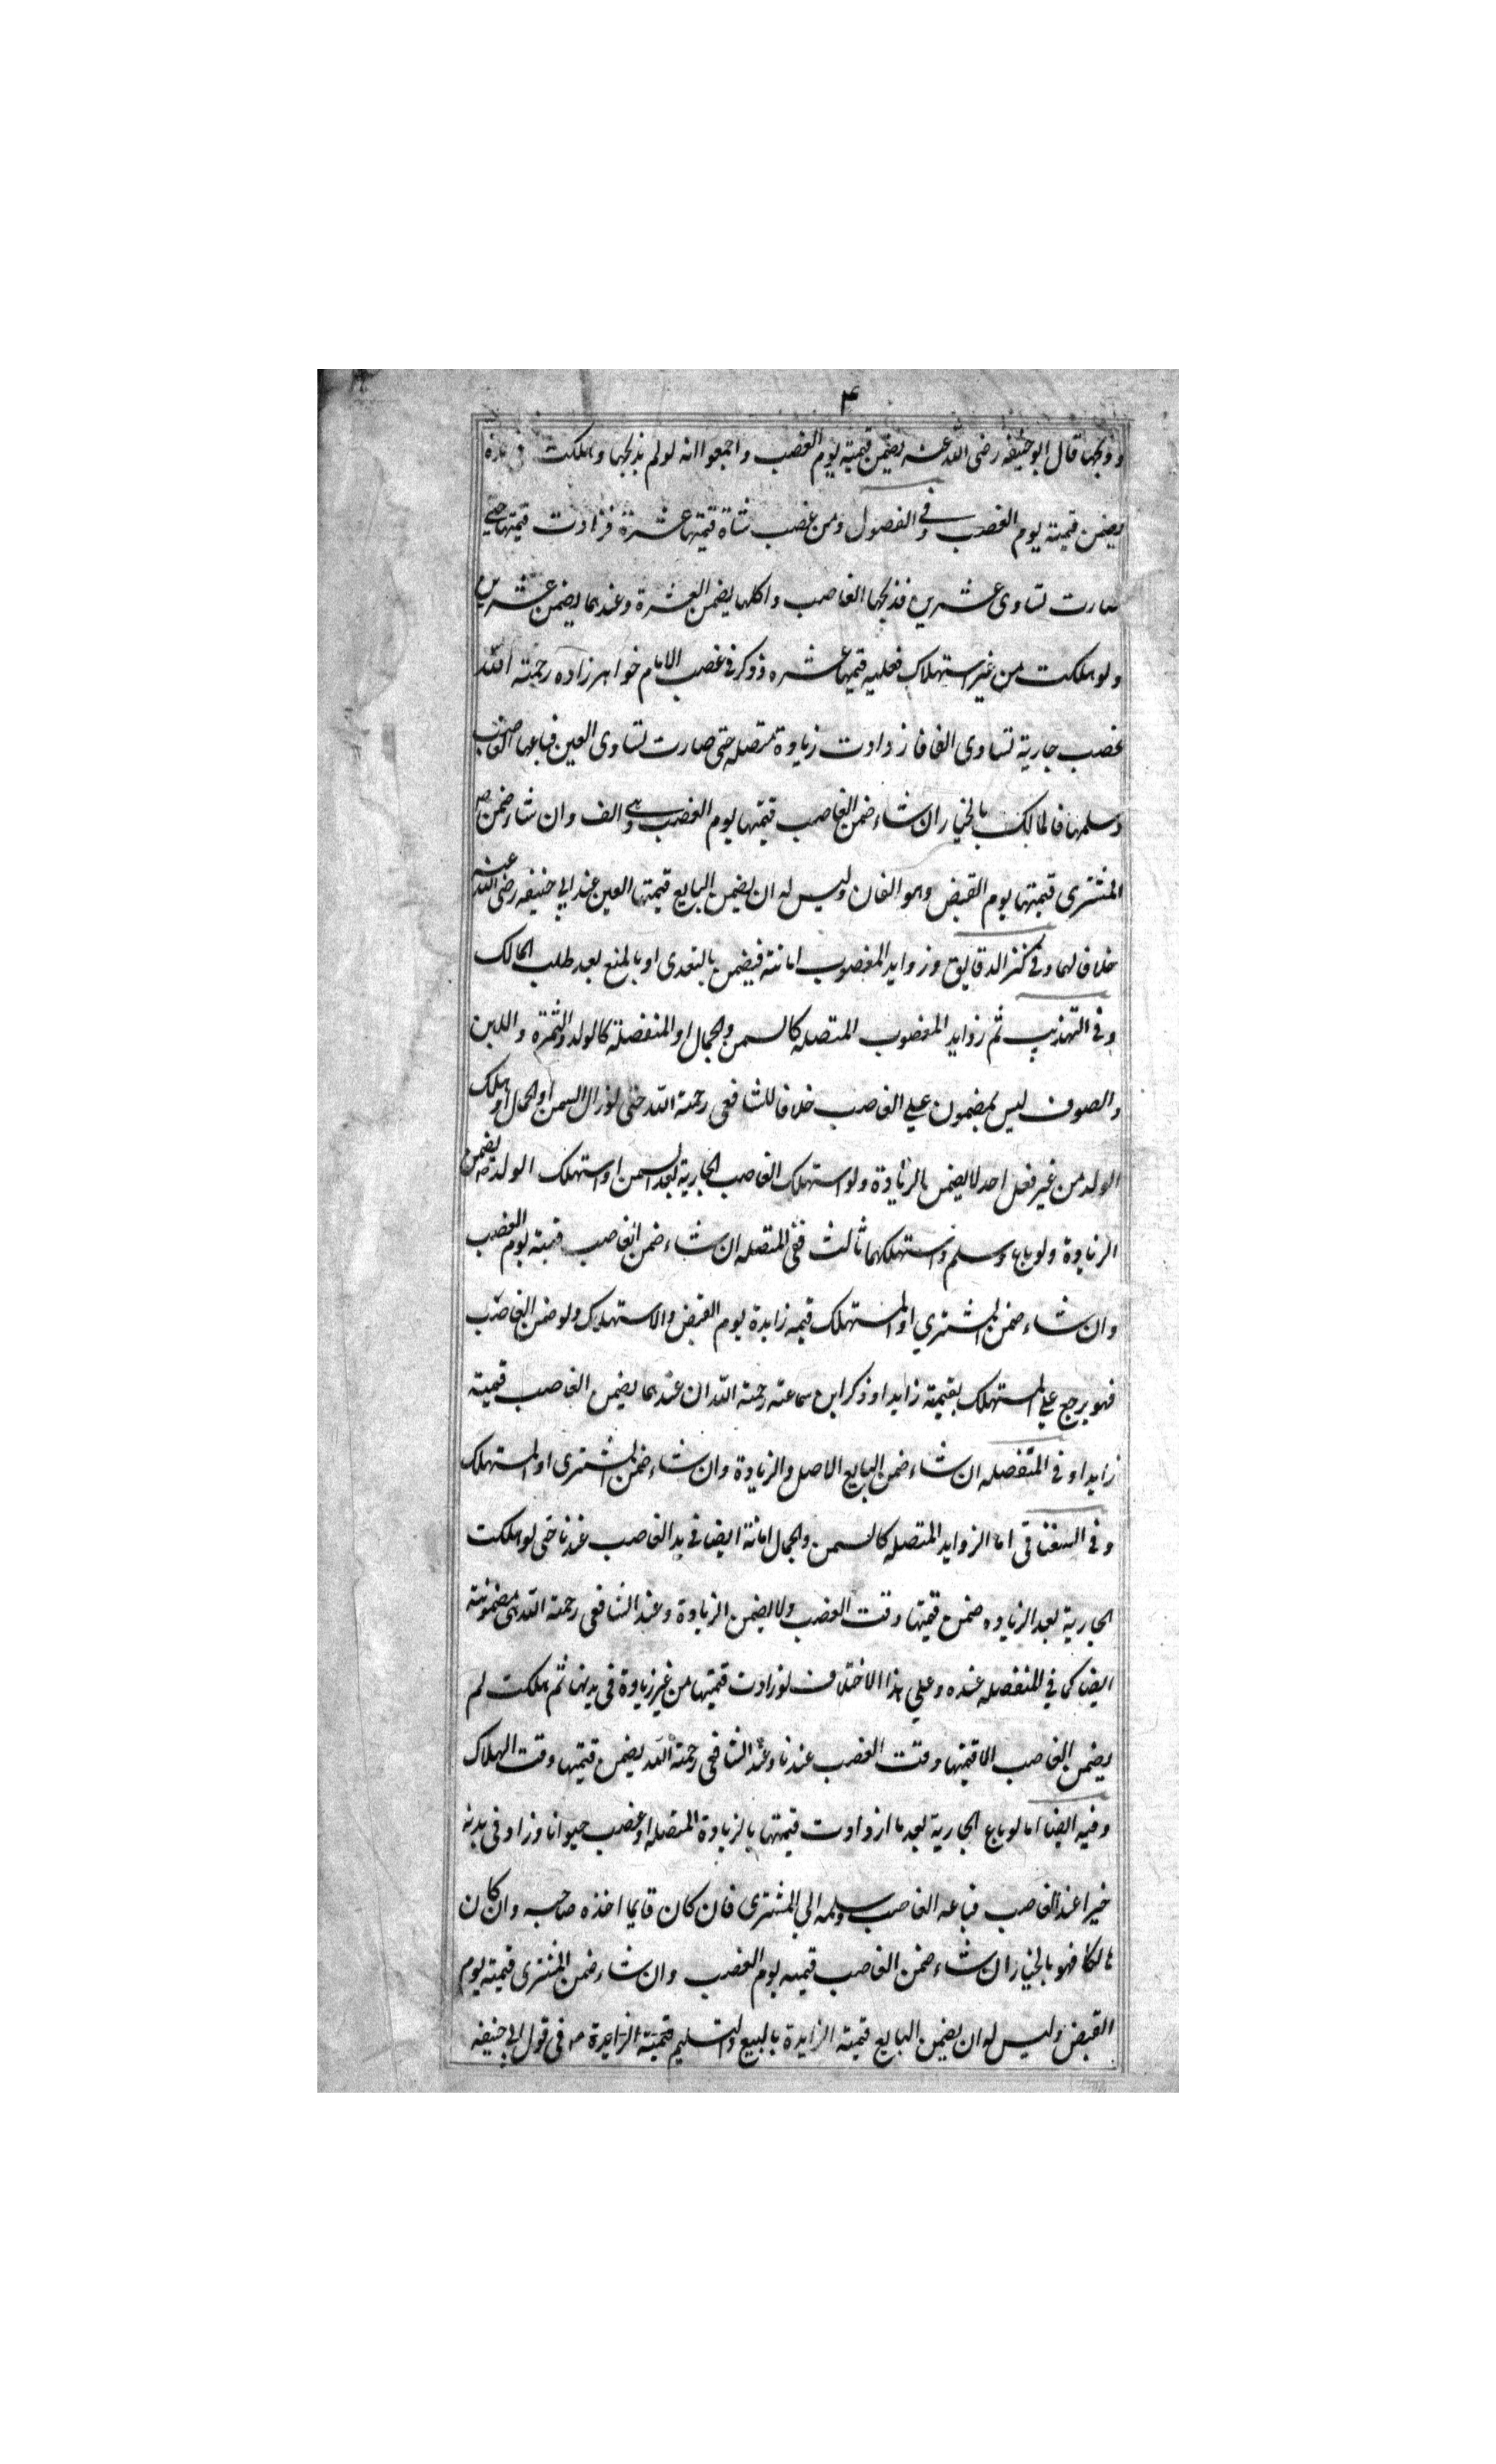 ۴
وذبحها قال ابو حنيفه رضى الله عنه يضمن قيمته يوم الغصب واجمعوا انه لو لم يذبحها وهلكت فى يده
يضمن قيمته يوم الغصب وفى الفصول ومن غصب شاة قيمتها عشرة فزادت قيمتها حتى
صارت تساوى عشرين فذبحها الغاصب واكلها يضمن العشرة وعندهما يضمن عشرين
ولو هلكت من غير استهلاك فعليه قيمتها عشره وذكر فى غصب الامام خواهر زاده رحمته الله
غصب جارية تساوى الفا فازدادت زيادة متصله حتى صارت تساوى الفين فباعها الغاصب
وسلمها فالمالك بالخيار ان شاء ضمن الغاصب قيمتها يوم الغصب وهى الف وان شاء ضمن
المشترى قيمتها يوم القبض وهو الفان وليس له ان يضمن البايع قيمتها الفين عند ابى حنيفه رضى الله عنه
خلافا لهما وفى كنز الدقايق وزوايد المغصوب امانته فيضمن بالتعدى او بالمنع بعد طلب المالك
وفى التهذيب ثم زوايد المغصوب المتصله كالسمن والجمال او المنفصلة كالولد والثمرة واللبن
والصوف ليس بمضمون على الغاصب خلافا للشافعى رحمته الله حتى لو زال السمن او الجمال او هلك
الولد من غير فعل احد لا يضمن بالزيادة ولو استهلك الغاصب الجارية بعد السمن او استهلك الولد يضمن
الزيادة ولو باع وسلم واستهلكهما ثالث ففى المتصله ان شاء ضمن الغاصب قيمته يوم الغصب
وان شاء ضمن المشتري او المستهلك قيمه زايدة يوم القبض والاستهلاك ولو ضمن الغاصب
فهو يرجع على المستهلك بقيمته زايدا وذكر ابن سماعته رحمته الله ان عندهما يضمن الغاصب قيمته
زايدا وفى المنفصله ان شاء ضمن البايع الاصل والزيادة وان شاء ضمن المشترى او المستهلك
وفى السغناقى اما الزوايد المتصله كالسمن والجمال امانة ايضا فى يد الغاصب عندنا حتى لو هلكت
الجارية بعد الزياده ضمن قيمتها وقت الغصب ولا يضمن الزيادة وعند الشافعى رحمته الله هى مضمونته
ايضا كما في المنفصله عنده وعلي هذا الاختلاف لو زادت قيمتها من غير زيادة فى بدنها ثم هلكت لم
يضمن الغاصب الا قيمتها وقت الغصب عندنا وعند الشافعى رحمته الله يضمن قيمتها وقت الهلاك
وفيه ايضا اما لو باع الجارية بعد ما ازدادت قيمتها بالزيادة المتصله او غصب حيوانا وزاد فى بدنه
خيرا عند الغاصب فباعه الغاصب وسلمه الى المشترى فان كان قايما اخذه صاحبه وان كان
هالكا فهو بالخيار ان شاء ضمن الغاصب قيمه يوم الغصب وان شاء ضمن المشترى قيمته يوم
القبض وليس له ان يضمن البايع قيمته الزايدة بالبيع والتسليم قيمته الزايدة فى قول ابى حنيفه